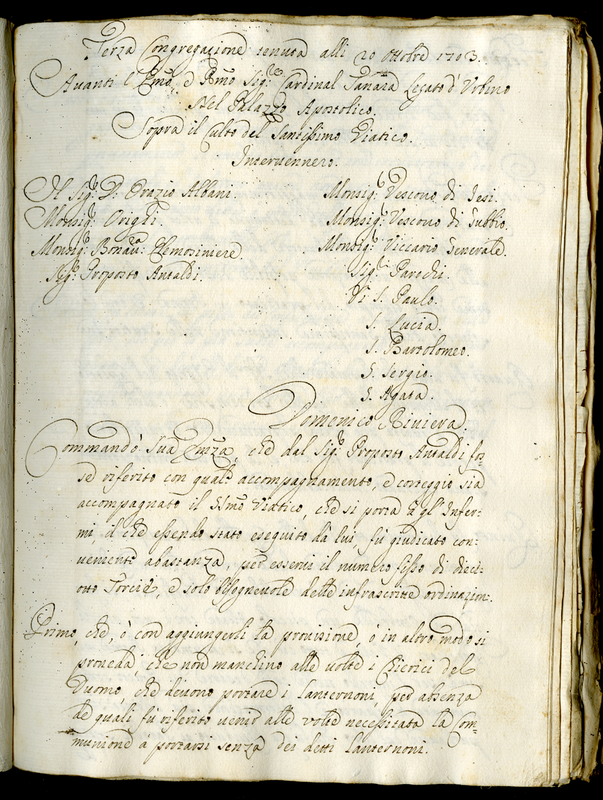 Terza Congregazione tenuta alli 20 Ottobre 1703.
Avanti l'Emo, e Rmo Sigr Cardinal Tanara Legato d'Urbino
Nel Palazzo Apostolico.
Sopra il Culto del Santissimo Viatico.
Intervennero.
Il Sigr D. Orazio Albani.
Monsigr Origdi.
Monsigr Bonav: Elemosiniere.
Sigr Proposto Antaldi.
Monsigr Vescovo di Jesi.
Monsigr Vescovo di Gubbio.
Monsigr Viccario Generale.
Sigri Parochi
Di S. Paulo.
S. Lucia.
S. Bartolomeo.
S. Sergio.
S. Agata.
Domenico Riviera
Commandò Sua Emza, che dal Sigr Proposto Antaldi fos=
se riferito con quale accompagnamento, e corteggio sia
accompagnato il SSmo Viatico, che si porta à gl'Infer=
mi, il che essendo stato eseguito da lui fù giudicato con=
veniente abastanza, per esservi il numero fisso di dieci
otto Torcie, e solo bisognevole delle infrascritte ordinazion:
Primo, che, ò con aggiungerli la provisione, o in altro modo si
proveda, che non manchino alle volte i Chierici del
Duomo, che devono portare i Lanternoni, per absenza
de quali fù riferito venir alle volte necessitata la Com=
munione a portarsi senza dei detti Lanternoni.